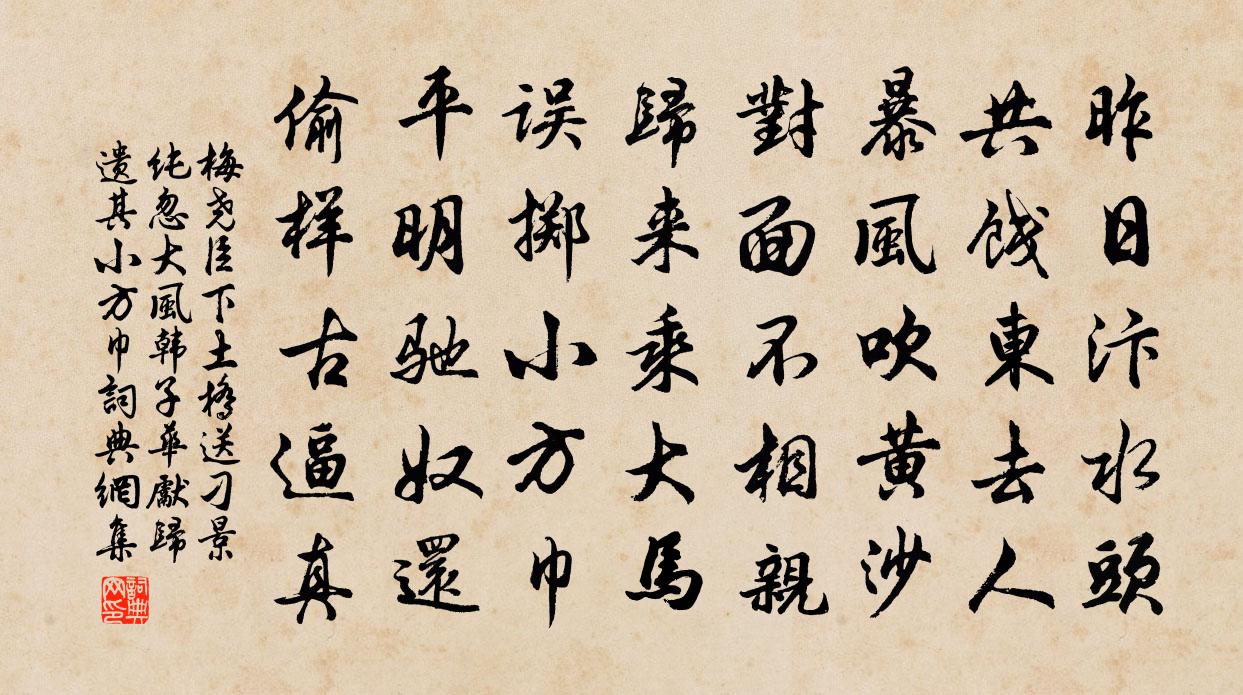 昨日汴水頭
共餞東去人
暴風吹黄沙
對面不相親
歸来乘大馬
误掷小方巾
平明馳奴還
偷样古逼真
梅尧臣下土橋送刁景
纯忽大風韩子華獻歸
遺其小方巾詞典網集
詞典网印